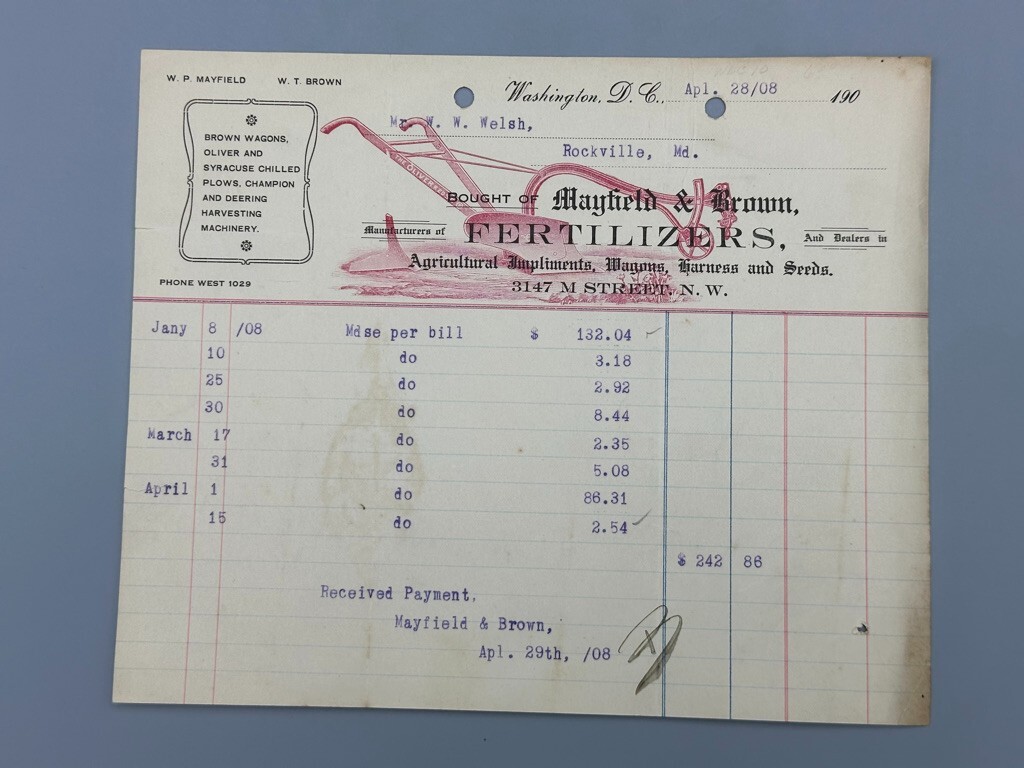 W. P. MAYFIELD W. T. BROWN
BROWN WAGONS,
OLIVER AND
SYRACUSE CHILLED
PLOWS, CHAMPION
AND DEERING
HARVESTING
MACHINERY.
PHONE WEST 1029
Washington, D. C., Apl. 28/08 190
Mr. W. W. Welsh,
Rockville, Md.
THE OLIVER
BOUGHT OF Mayfield & Brown,
Manufacturers of FERTILIZERS, And Dealers in
Agricultural Impliments, Wagons, Harness and Seeds.
3147 M STREET, N. W.
Jany 8 /08 Mdse per bill $ 132.04
10 do 3.18
25 do 2.92
30 do 8.44
March 17 do 2.35
31 do 5.08
April 1 do 86.31
15 do 2.54
$ 242 86
Received Payment,
Mayfield & Brown,
Apl. 29th, /08